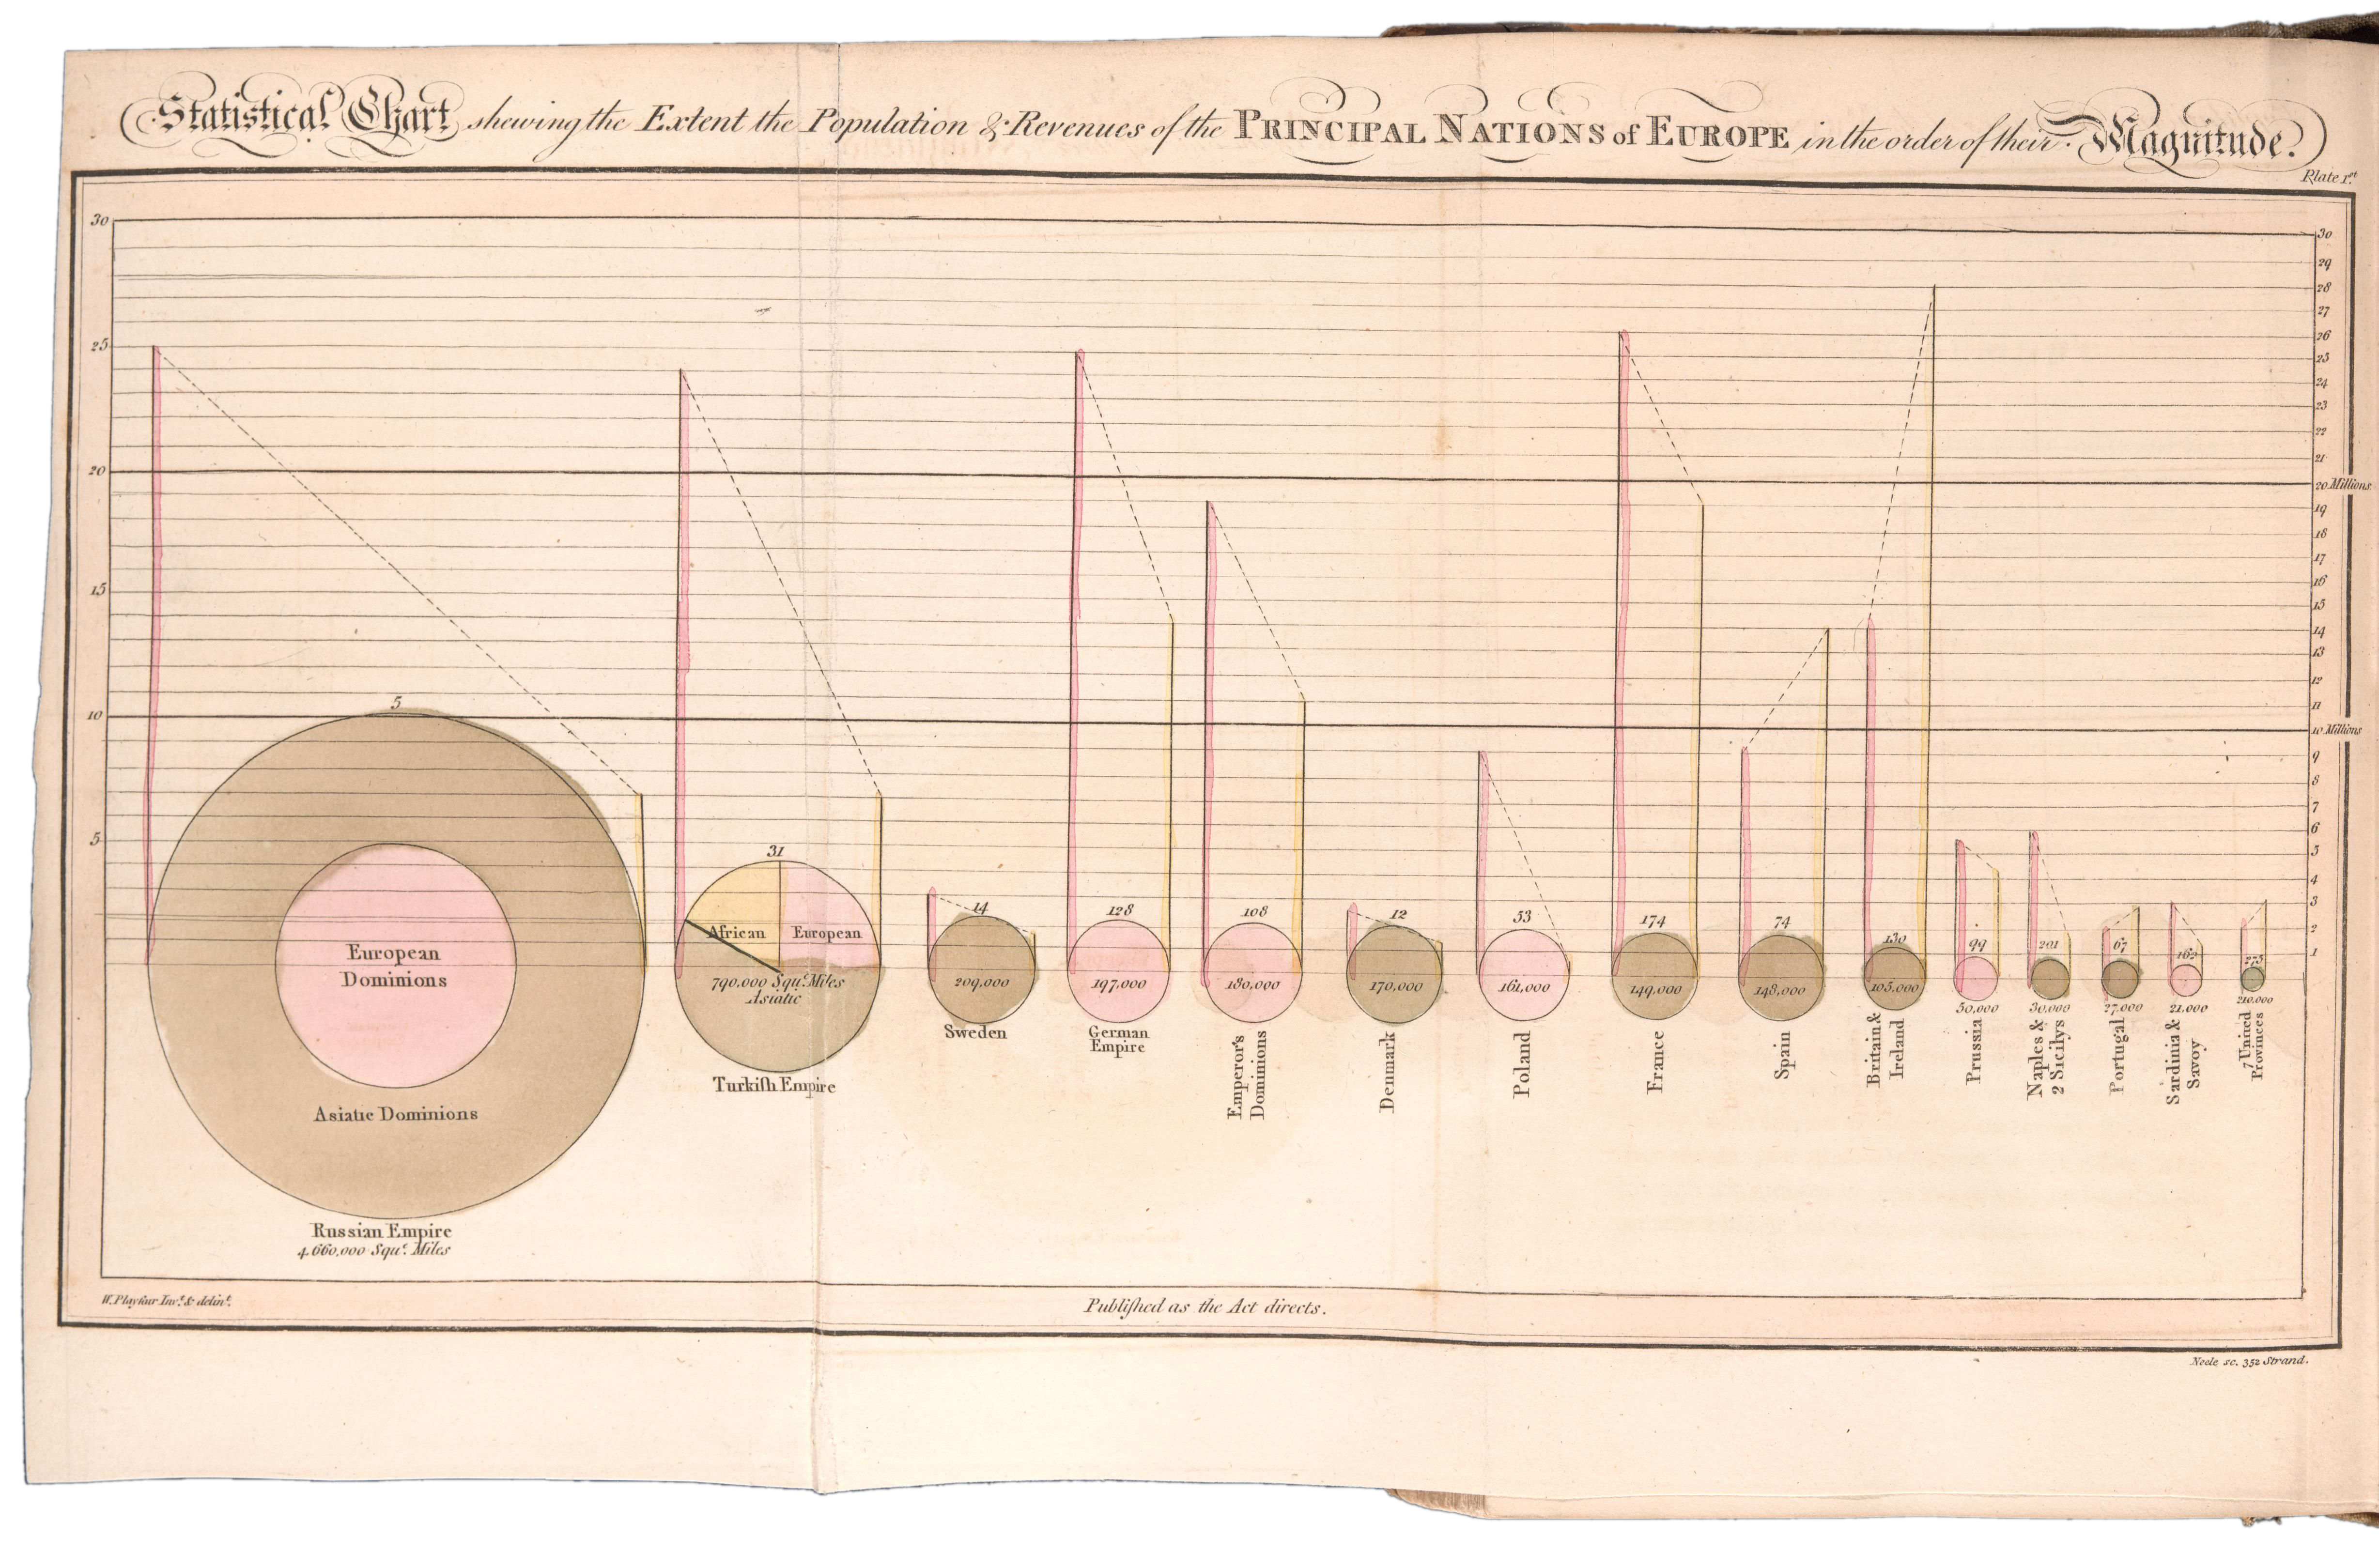 Statistical Chart shewing the Extent the Population & Revenues of the PRINCIPAL NATIONS of EUROPE in the order of their Magnitude.
Plate 1st
30
25
20
15
10
5
30
29
28
27
26
25
24
23
22
21
20 Millions
19
18
17
16
15
14
13
12
11
10 Millions
9
8
7
6
5
4
3
2
1
5
European
Dominions
Asiatic Dominions
Russian Empire
4.660,000 Sque. Miles
31
African
European
790.000 Sque. Miles
Asiatic
Turkiſh Empire
14
209,000
Sweden
128
197,000
German
Empire
108
180,000
Emperor's
Dominions
12
170,000
Denmark
53
161,000
Poland
174
149,000
France
74
148,000
Spain
130
105,000
Britain &
Ireland
99
50,000
Prussia
201
30,000
Naples &
2 Sicilys
67
27,000
Portugal
162
21.000
Sardinia &
Savoy
275
210.000
7 United
Provinces
W. Playfair Invt. & delint.
Publiſhed as the Act directs.
Neele sc. 352 Strand.